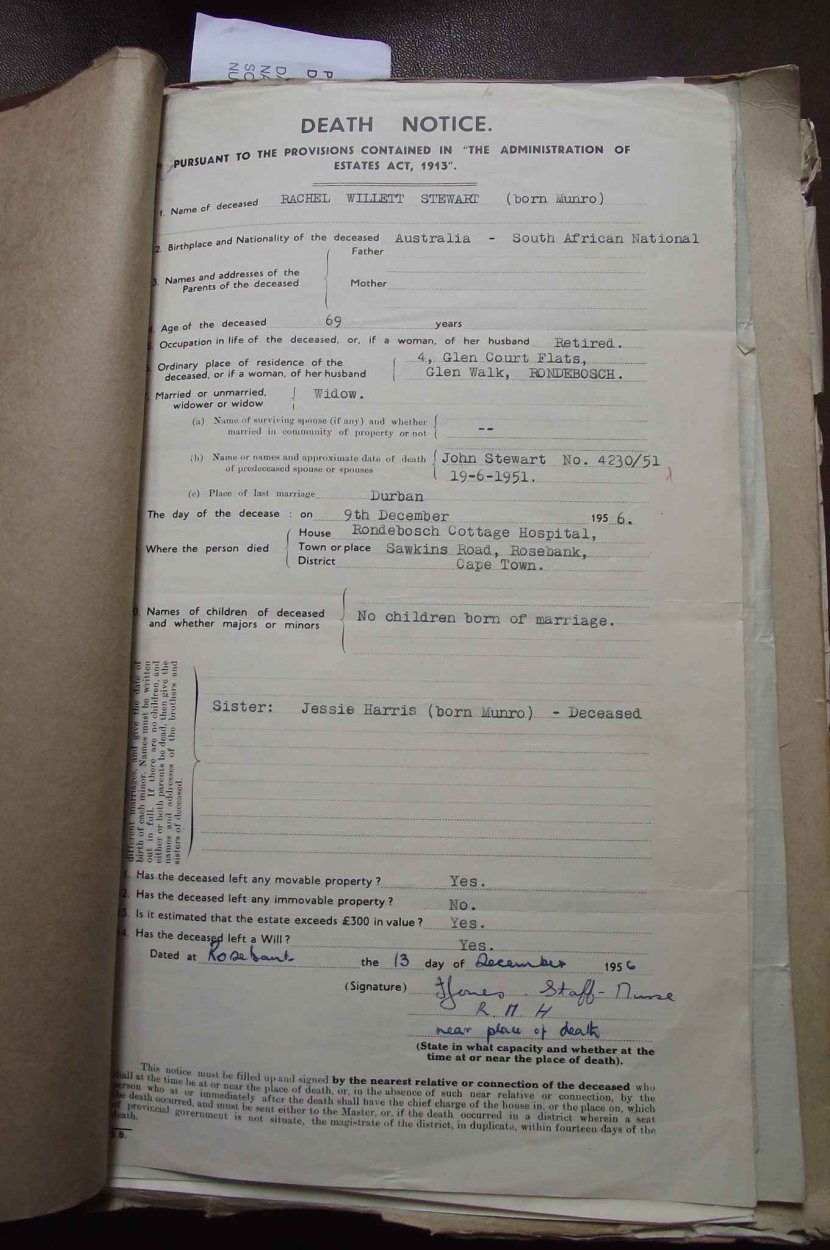 DEATH NOTICE.
PURSUANT TO THE PROVISIONS CONTAINED IN "THE ADMINISTRATION OF
ESTATES ACT, 1913".
1. Name of deceased RACHEL WILLETT STEWART (born Munro)
2. Birthplace and Nationality of the deceased Australia - South African National
3. Names and addresses of the Parents of the deceased
Father
Mother
Age of the deceased 69 years
Occupation in life of the deceased, or, if a woman, of her husband Retired.
Ordinary place of residence of the 4, Glen Court Flats,
deceased, or if a woman, of her husband Glen Walk, RONDEBOSCH.
Married or unmarried, Widow.
widower or widow
(a) Name of surviving spouse (if any) and whether
married in community of property or not --
(b) Name or names and approximate date of death John Stewart No. 4230/51
of predeceased spouse or spouses 19-6-1951.
(c) Place of last marriage Durban
The day of the decease : on 9th December 1956.
House Rondebosch Cottage Hospital,
Where the person died Town or place Sawkins Road, Rosebank,
District Cape Town.
Names of children of deceased
and whether majors or minors No children born of marriage.
different marriages, and give the date of
birth of each minor. Names must be written
out in full. If there are no children, and
either or both parents be dead, then give the
names and addresses of the brothers and
sisters of deceased.
Sister: Jessie Harris (born Munro) - Deceased
1. Has the deceased left any movable property? Yes.
2. Has the deceased left any immovable property? No.
3. Is it estimated that the estate exceeds £300 in value? Yes.
4. Has the deceased left a Will? Yes.
Dated at Rosebank the 13 day of December 1956
(Signature) Jones. Staff-Nurse
R. M. H
near place of death
(State in what capacity and whether at the
time at or near the place of death).
This notice must be filled up and signed by the nearest relative or connection of the deceased who
shall at the time be at or near the place of death, or, in the absence of such near relative or connection, by the
person who at or immediately after the death shall have the chief charge of the house in, or the place on, which
the death occurred, and must be sent either to the Master, or, if the death occurred in a district wherein a seat
of provincial government is not situate, the magistrate of the district, in duplicate, within fourteen days of the
death.
S.B.